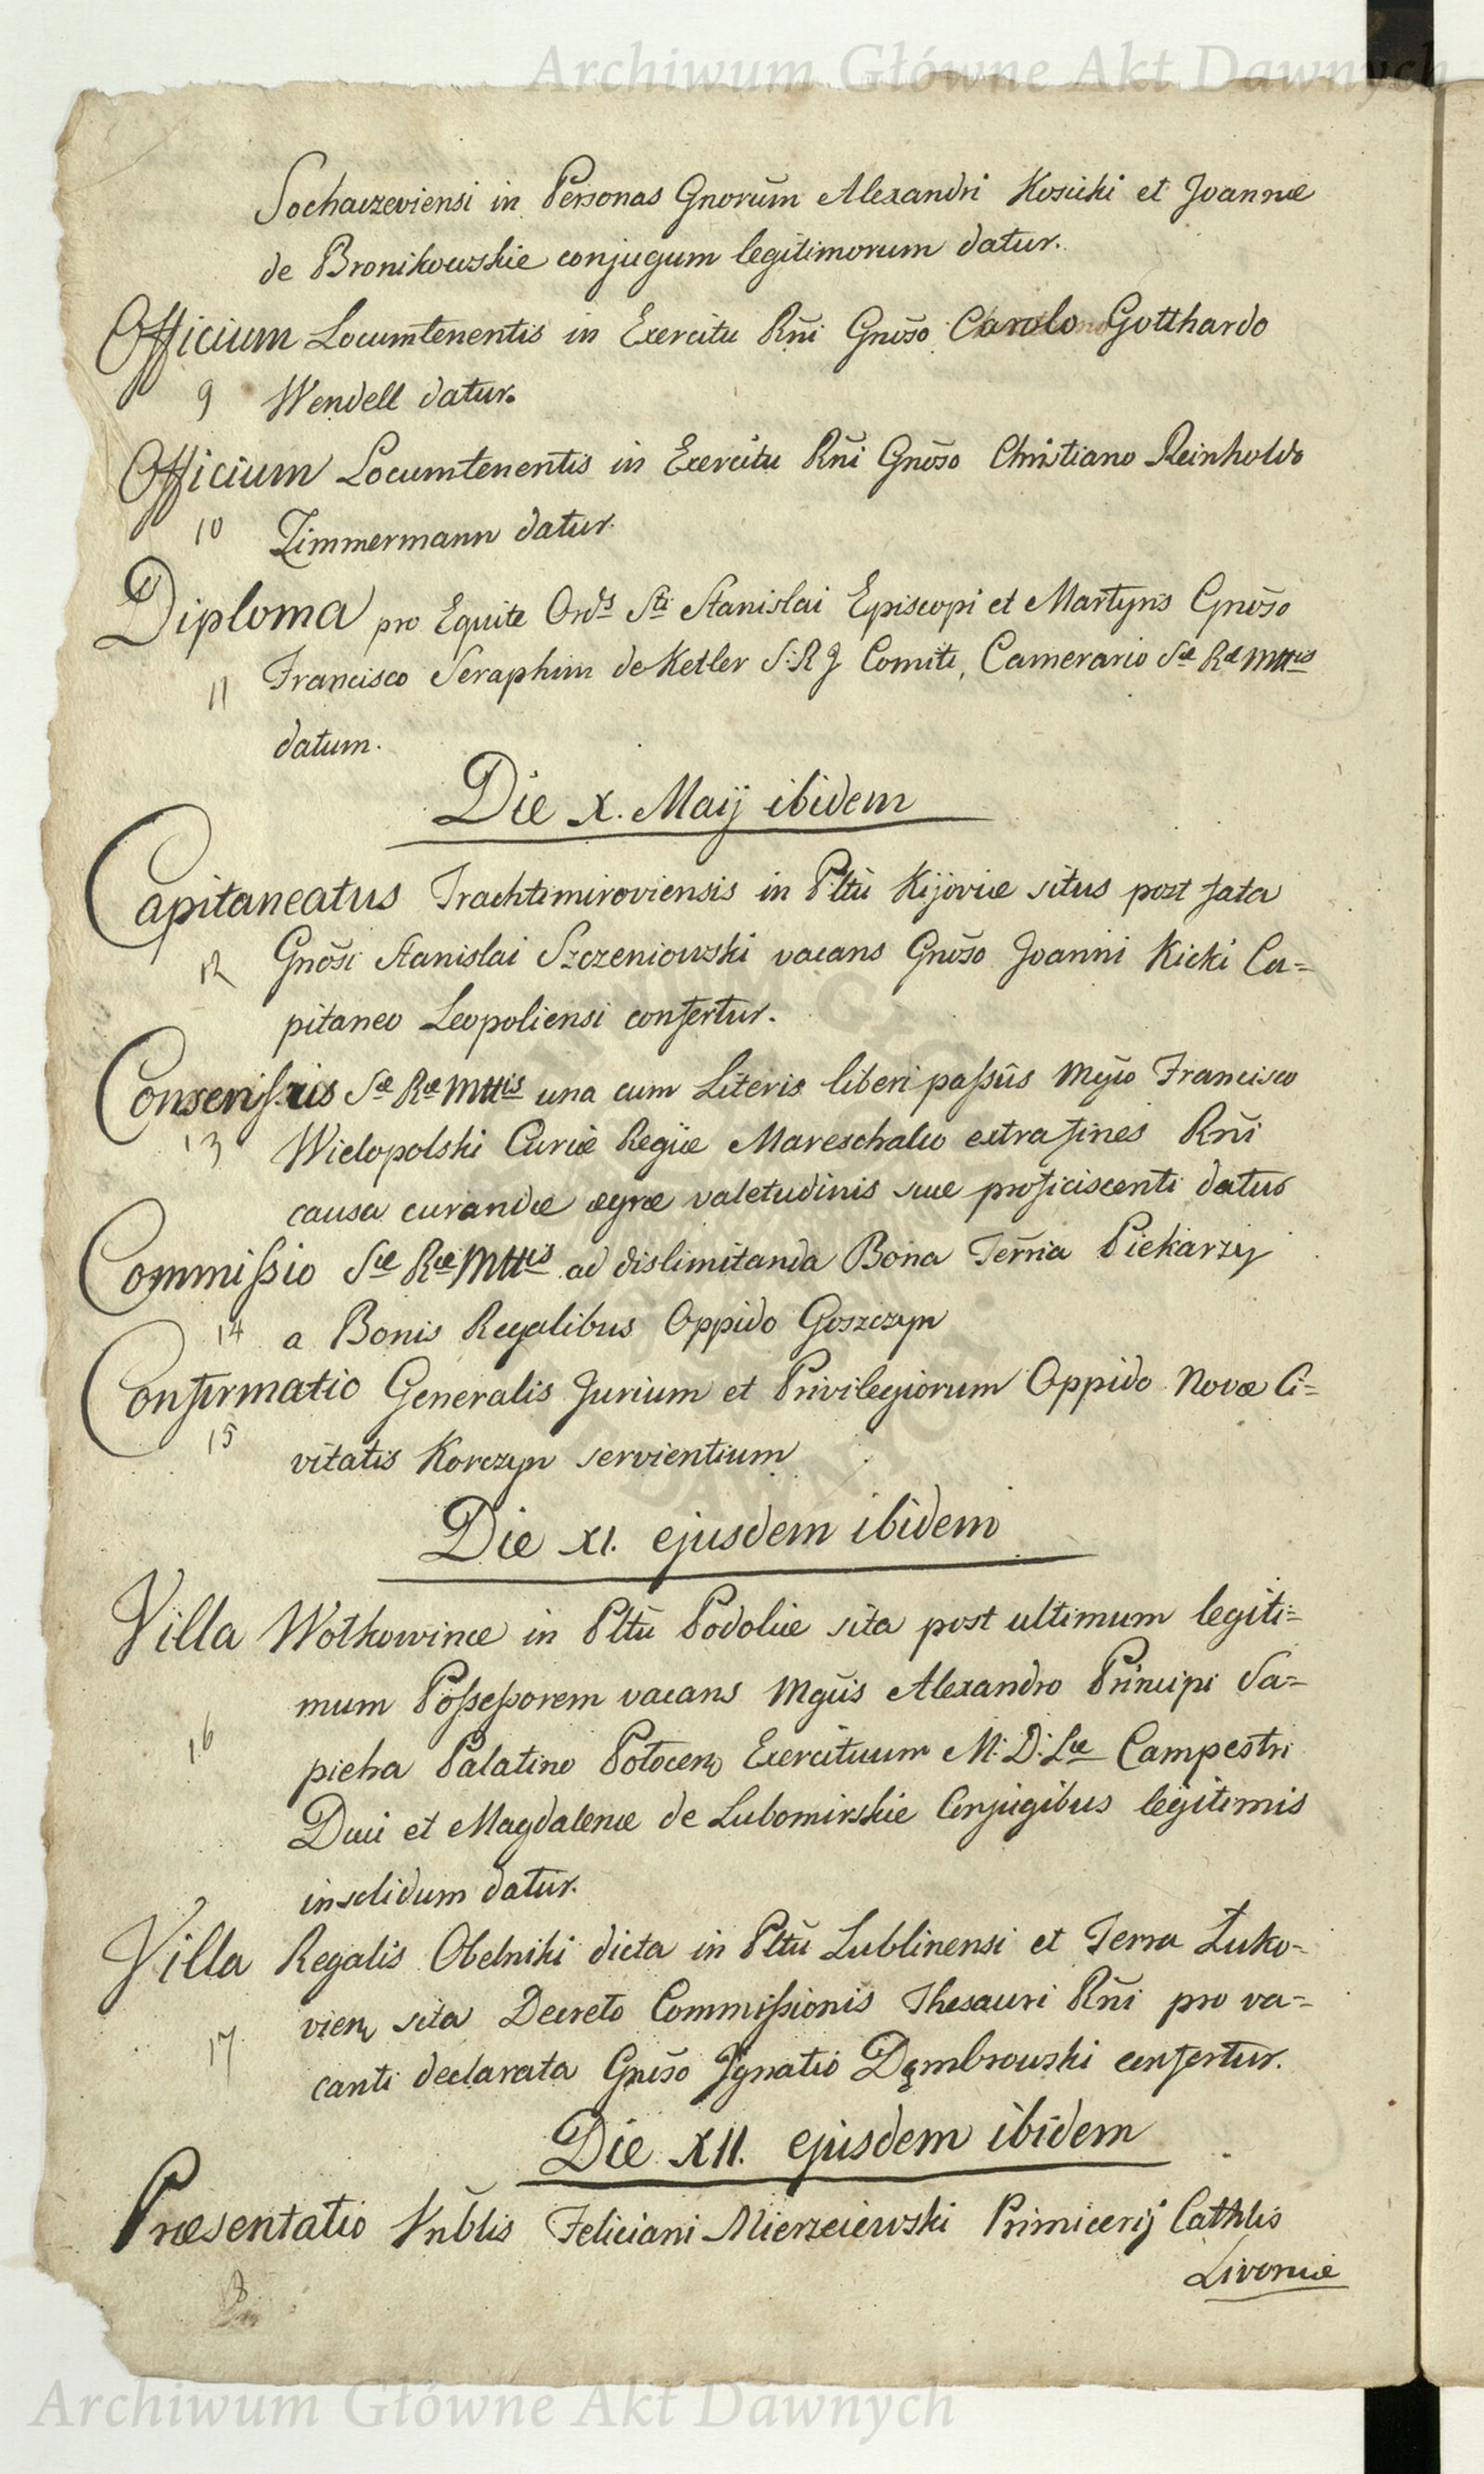 Archiwum Główne Akt Dawnych
Sochaczeviensi in Personas Gnorum Alexandri Kosicki et Joannæ
de Bronikowskie conjugum legitimorum datur.
Officium Locumtenentis in Exercitu Rñi Gnoso Carolo Gotthardo
9 Wendell datur.
Officium Locumtenentis in Exercitu Rñi Gnoso Christiano Reinholdo
10 Zimmermann datur.
Diploma pro Equite Ords Sti Stanislai Episcopi et Martyris Gnoso
11 Francisco Seraphim de Ketler S: R J Comiti, Camerario Sæ Ræ Mttis
datum.
Die X. Maij ibidem
Capitaneatus Trachtimiroviensis in Pltu Kijoviæ situs post fata
12 Gnosi Stanislai Szczeniowski vacans Gnoso Joanni Kicki Ca=
pitaneo Leopoliensi confertur.
Consensus Sæ Ræ Mttis una cum Literis liberi passûs Mgio Francisco
13 Wielopolski Curiæ Regiæ Mareschalco extra fines Rñi
causa curandæ ægræ valetudinis suæ proficiscenti datus
Commissio Sæ Ræ Mttis ad dislimitanda Bona Terria Piekarzy
14 a Bonis Regalibus Oppido Goszczyn
Confirmatio Generalis Jurium et Privilegiorum Oppido Novæ Ci=
15 vitatis Korczyn servientium
Die XI. ejusdem ibidem
Villa Wołkowince in Pltu Podoliæ sita post ultimum legiti=
mum Possessorem vacans Mguis Alexandro Principi Sa=
16 pieha Palatino Potocen Exercituum M: D: Læ Campestri
Duci et Magdalenæ de Lubomirskie Conjugibus legitimis
insolidum datur.
Villa Regalis Obelniki dicta in Pltu Lublinensi et Terra Łuko=
17 vien sita Decreto Commissionis Thesauri Rñi pro va=
canti declarata Gnoso Ignatio Dąmbrowski confertur.
Die XII. ejusdem ibidem
Præsentatio Vnblis Feliciani Mierzeiewski Primicerij Cathlis
18
Livoniæ
Archiwum Główne Akt Dawnych